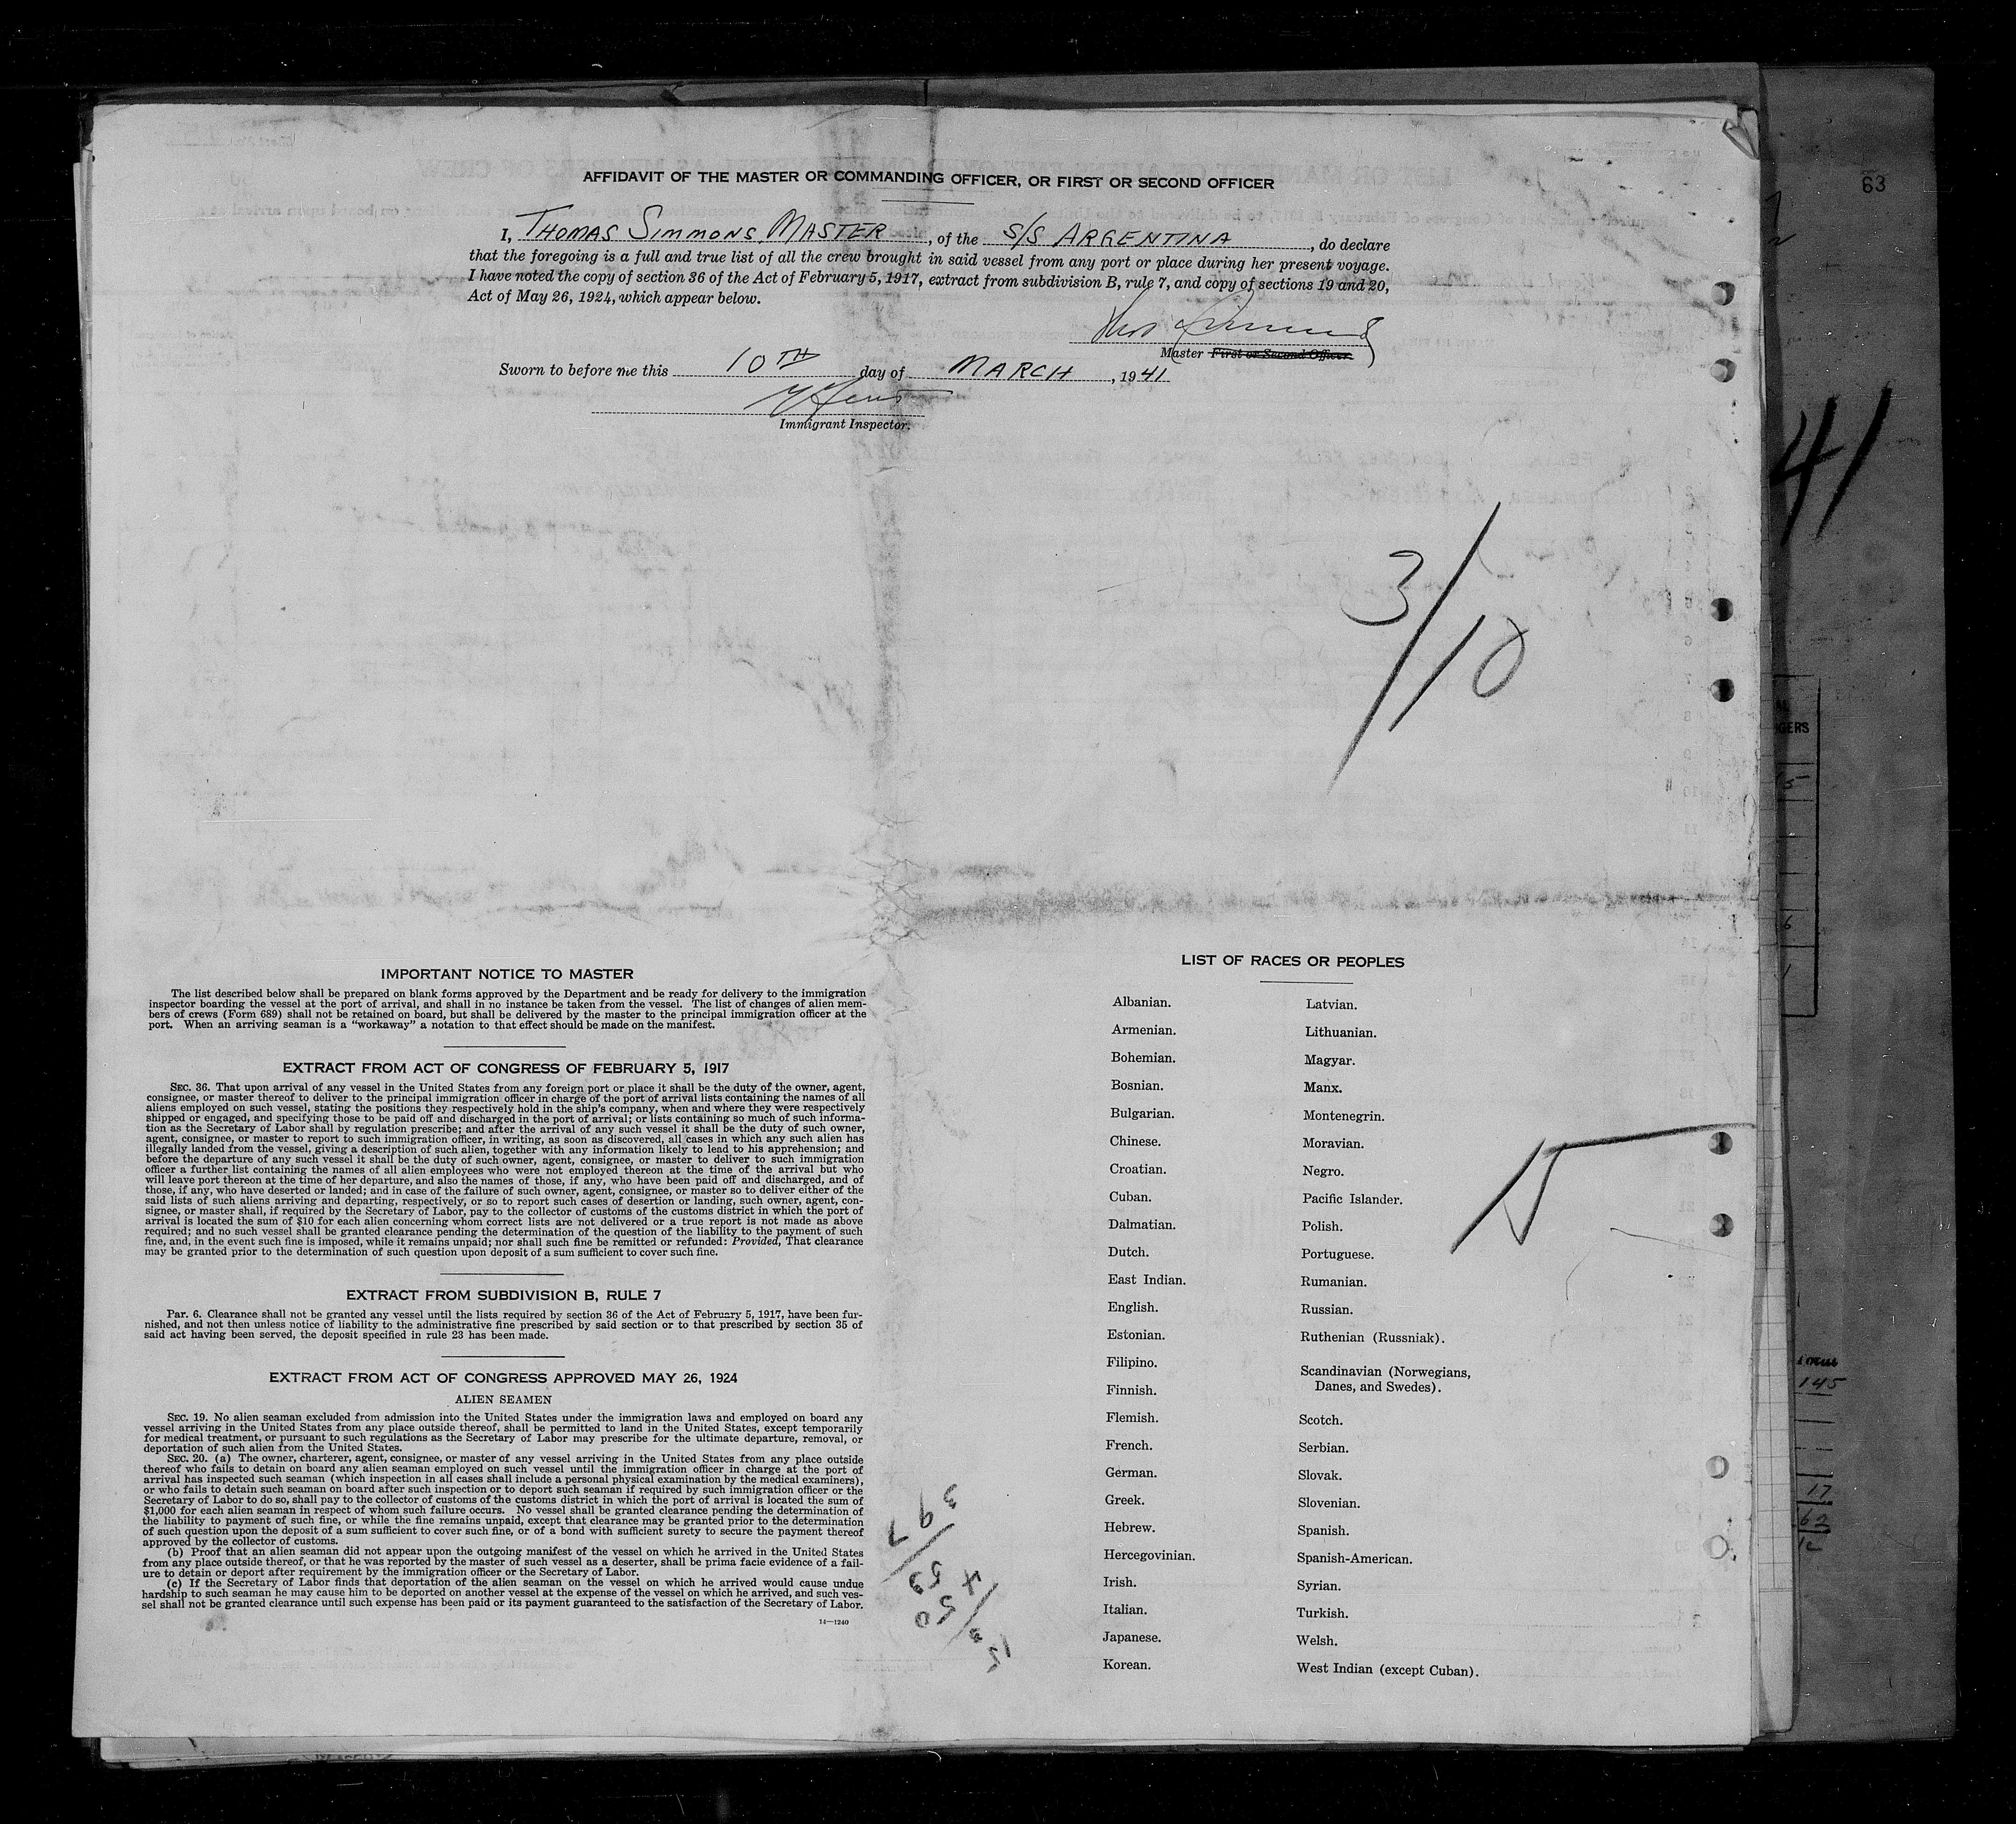 63
AFFIDAVIT OF THE MASTER OR COMMANDING OFFICER, OR FIRST OR SECOND OFFICER
I, THOMAS SIMMONS, MASTER, of the S/S ARGENTINA, do declare
that the foregoing is a full and true list of all the crew brought in said vessel from any port or place during her present voyage.
I have noted the copy of section 36 of the Act of February 5, 1917, extract from subdivision B, rule 7, and copy of sections 19 and 20,
Act of May 26, 1924, which appear below.
Thos Simmons
Master First or Second Officer.
Sworn to before me this 10TH day of MARCH, 1941
Immigrant Inspector.
41
3/10
IMPORTANT NOTICE TO MASTER
The list described below shall be prepared on blank forms approved by the Department and be ready for delivery to the immigration
inspector boarding the vessel at the port of arrival, and shall in no instance be taken from the vessel. The list of changes of alien mem-
bers of crews (Form 689) shall not be retained on board, but shall be delivered by the master to the principal immigration officer at the
port. When an arriving seaman is a "workaway" a notation to that effect should be made on the manifest.
EXTRACT FROM ACT OF CONGRESS OF FEBRUARY 5, 1917
SEC. 36. That upon arrival of any vessel in the United States from any foreign port or place it shall be the duty of the owner, agent,
consignee, or master thereof to deliver to the principal immigration officer in charge of the port of arrival lists containing the names of all
aliens employed on such vessel, stating the positions they respectively hold in the ship's company, when and where they were respectively
shipped or engaged, and specifying those to be paid off and discharged in the port of arrival; or lists containing so much of such informa-
tion as the Secretary of Labor shall by regulation prescribe; and after the arrival of any such vessel it shall be the duty of such owner,
agent, consignee, or master to report to such immigration officer, in writing, as soon as discovered, all cases in which any such alien has
illegally landed from the vessel, giving a description of such alien, together with any information likely to lead to his apprehension; and
before the departure of any such vessel it shall be the duty of such owner, agent, consignee, or master to deliver to such immigration
officer a further list containing the names of all alien employees who were not employed thereon at the time of the arrival but who
will leave port thereon at the time of her departure, and also the names of those, if any, who have been paid off and discharged, and of
those, if any, who have deserted or landed; and in case of the failure of such owner, agent, consignee, or master so to deliver either of the
said lists of such aliens arriving and departing, respectively, or so to report such cases of desertion or landing, such owner, agent, con-
signee, or master shall, if required by the Secretary of Labor, pay to the collector of customs of the customs district in which the port of
arrival is located the sum of $10 for each alien concerning whom correct lists are not delivered or a true report is not made as above
required; and no such vessel shall be granted clearance pending the determination of the question of the liability to the payment of such
fine, and, in the event such fine is imposed, while it remains unpaid; nor shall such fine be remitted or refunded: Provided, That clearance
may be granted prior to the determination of such question upon deposit of a sum sufficient to cover such fine.
EXTRACT FROM SUBDIVISION B, RULE 7
Par. 6. Clearance shall not be granted any vessel until the lists required by section 36 of the Act of February 5, 1917, have been fur-
nished, and not then unless notice of liability to the administrative fine prescribed by said section or to that prescribed by section 35 of
said act having been served, the deposit specified in rule 23 has been made.
EXTRACT FROM ACT OF CONGRESS APPROVED MAY 26, 1924
ALIEN SEAMEN
SEC. 19. No alien seaman excluded from admission into the United States under the immigration laws and employed on board any
vessel arriving in the United States from any place outside thereof, shall be permitted to land in the United States, except temporarily
for medical treatment, or pursuant to such regulations as the Secretary of Labor may prescribe for the ultimate departure, removal, or
deportation of such alien from the United States.
SEC. 20. (a) The owner, charterer, agent, consignee, or master of any vessel arriving in the United States from any place outside
thereof who fails to detain on board any alien seaman employed on such vessel until the immigration officer in charge at the port of
arrival has inspected such seaman (which inspection in all cases shall include a personal physical examination by the medical examiners),
or who fails to detain such seaman on board after such inspection or to deport such seaman if required by such immigration officer or the
Secretary of Labor to do so, shall pay to the collector of customs of the customs district in which the port of arrival is located the sum of
$1,000 for each alien seaman in respect of whom such failure occurs. No vessel shall be granted clearance pending the determination of
the liability to payment of such fine, or while the fine remains unpaid, except that clearance may be granted prior to the determination
of such question upon the deposit of a sum sufficient to cover such fine, or of a bond with sufficient surety to secure the payment thereof
approved by the collector of customs.
(b) Proof that an alien seaman did not appear upon the outgoing manifest of the vessel on which he arrived in the United States
from any place outside thereof, or that he was reported by the master of such vessel as a deserter, shall be prima facie evidence of a fail-
ure to detain or deport after requirement by the immigration officer or the Secretary of Labor.
(c) If the Secretary of Labor finds that deportation of the alien seaman on the vessel on which he arrived would cause undue
hardship to such seaman he may cause him to be deported on another vessel at the expense of the vessel on which he arrived, and such ves-
sel shall not be granted clearance until such expense has been paid or its payment guaranteed to the satisfaction of the Secretary of Labor.
14—1240
LIST OF RACES OR PEOPLES
Albanian.
Armenian.
Bohemian.
Bosnian.
Bulgarian.
Chinese.
Croatian.
Cuban.
Dalmatian.
Dutch.
East Indian.
English.
Estonian.
Filipino.
Finnish.
Flemish.
French.
German.
Greek.
Hebrew.
Hercegovinian.
Irish.
Italian.
Japanese.
Korean.
Latvian.
Lithuanian.
Magyar.
Manx.
Montenegrin.
Moravian.
Negro.
Pacific Islander.
Polish.
Portuguese.
Rumanian.
Russian.
Ruthenian (Russniak).
Scandinavian (Norwegians,
Danes, and Swedes).
Scotch.
Serbian.
Slovak.
Slovenian.
Spanish.
Spanish-American.
Syrian.
Turkish.
Welsh.
West Indian (except Cuban).
15
145
17
62